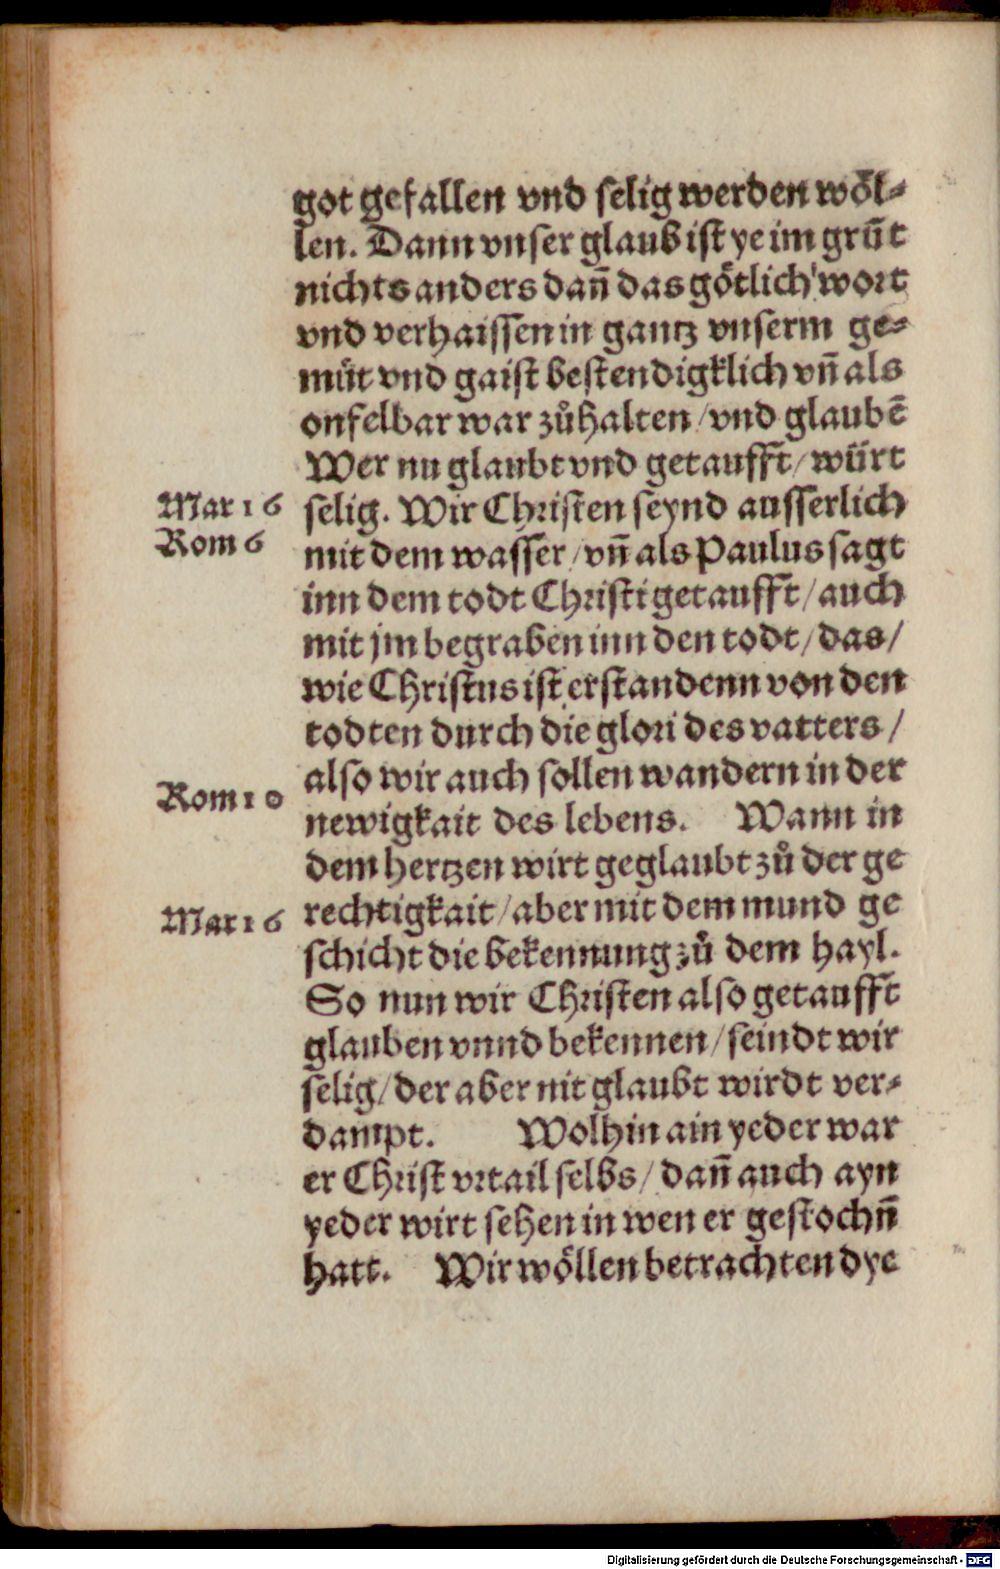 got gefallen vnd selig werden wöl-
len. Dann vnser glaub ist ye im grūt
nichts anders dañ das götlich wort
vnd verhaissen in gantz vnserm ge-
müt vnd gaist bestendigklich vñ als
onfelbar war zůhalten / vnd glaubē
Wer nu glaubt vnd getaufft / würt
Mar 16
selig. Wir Christen seynd ausserlich
Rom 6
mit dem wasser / vñ als Paulus sagt
inn dem todt Christi getaufft / auch
mit jm begraben inn den todt / das /
wie Christus ist erstandenn von den
todten durch die glori des vatters /
also wir auch sollen wandern in der
Rom 10
newigkait des lebens. Wann in
dem hertzen wirt geglaubt zů der ge
Mar 16
rechtigkait / aber mit dem mund ge
schicht die bekennung zů dem hayl.
So nun wir Christen also getaufft
glauben vnnd bekennen / seindt wir
selig / der aber nit glaubt wirdt ver-
dampt. Wolhin ain yeder war
er Christ vrtail selbs / dañ auch ayn
yeder wirt sehen in wen er gestochñ
hatt. Wir wöllen betrachten dye
Digitalisierung gefördert durch die Deutsche Forschungsgemeinschaft - DFG